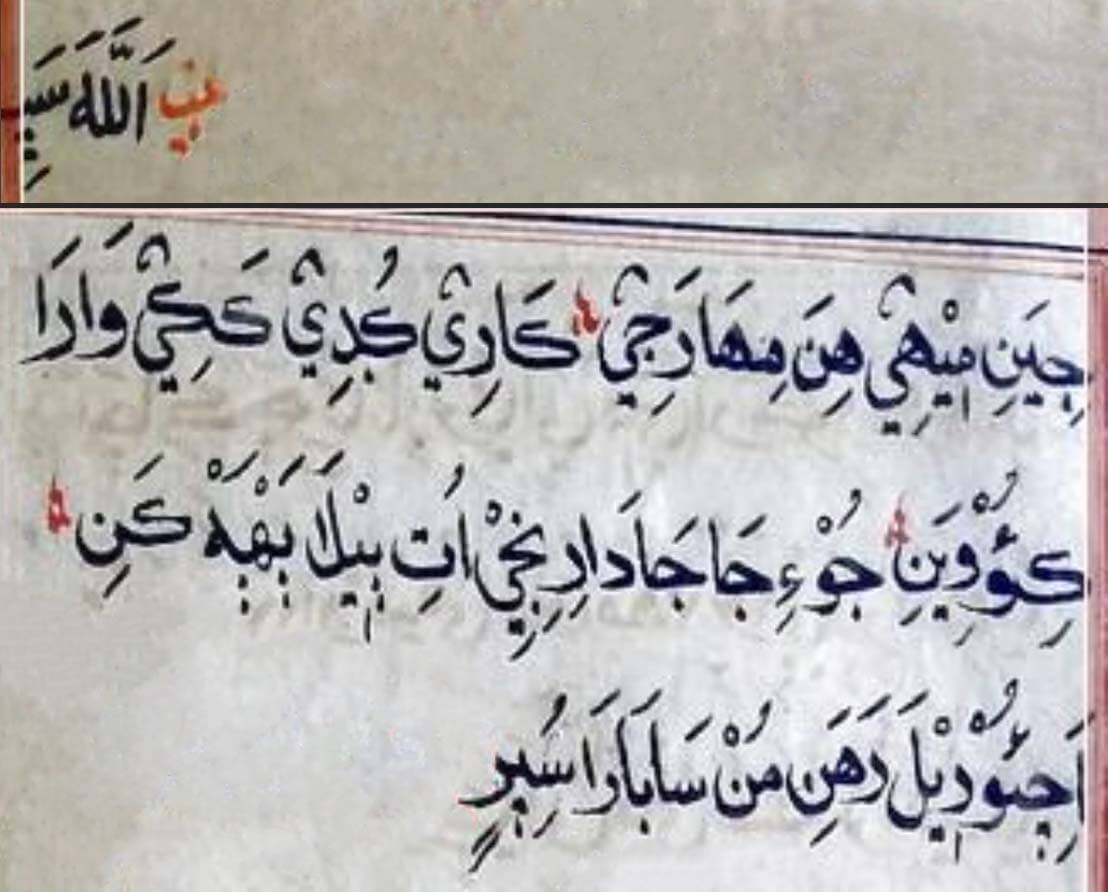 اَللّٰهَ
جِيَنِ مِيْهِيْ هِنَ مِهَارَ جِيْ كَارِيْ كُدِيْ كَكِيْ وَارَا
كِئُوْ وِيَنِ جُوْءِ جَا جَادَارِ اُتِ بِيْلَا بَهْبَهْ كَنِ
اَچِئُوْ دِيْلَ رَهَنِ مُنْ سَابَارَا سُپِرِ